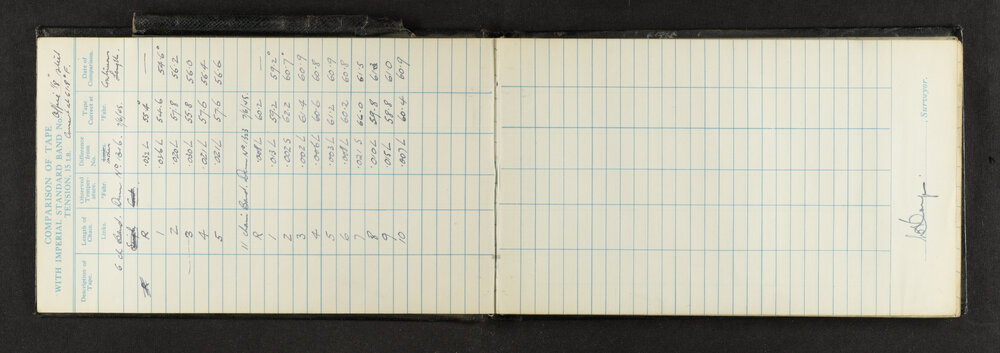 COMPARISON OF TAPE
WITH IMPERIAL STANDARD BAND No
TENSION, 15 LB.
Description of Tape. Length of Chain. Observed Temperature. Difference from No. Tape Correct at Date of Comparison.
Links °Fahr. °Fahr.
6 ch Band. Dum No 1316. 7/6/45.
R .032 L 55.4° —
1 .036 L 54.6 54.6°
2 .020 L 57.8 56.2
3 .030 L 55.8 56.0
4 .021 L 57.6 56.4
5 .021 L 57.6 56.6
11 chain Band. 7/6/45.
R .008 L 60.2 —
1 .013 L 59.2 59.2°
2 .002 S 62.2 60.7°
3 .002 L 61.4 60.9
4 .006 L 60.6 60.8
5 .003 L 61.2 60.9
6 .008 L 60.2 60.8
7 .021 S 66.0 61.5
8 .010 L 59.8
9 .015 L 58.8 61.0
10 .007 L 60.4 60.9
Surveyor.